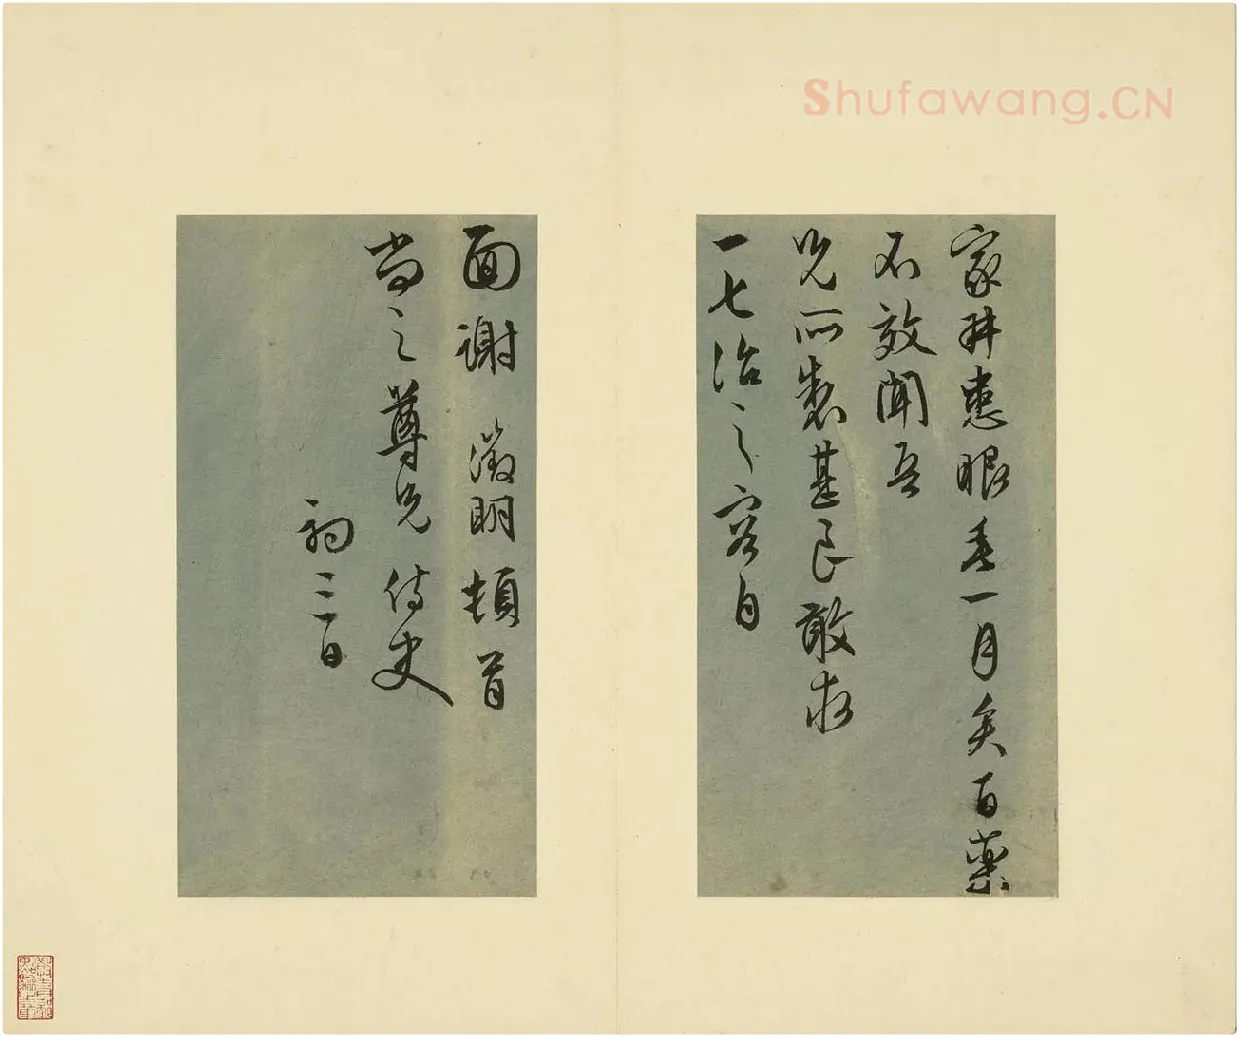 Shufawang.CN
家井患眼垂一月矣百藥
不效聞吾
兄所製甚良敢求
一七治之容自
面謝 徵明頓首
尚之尊兄 侍史
初三日